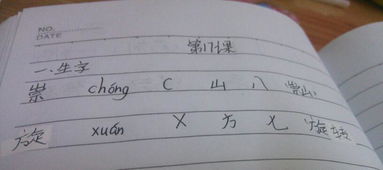 NO.
DATE
第17课
一、生字
崇 chóng C 山 八 崇山
旋 xuán X 方 乂